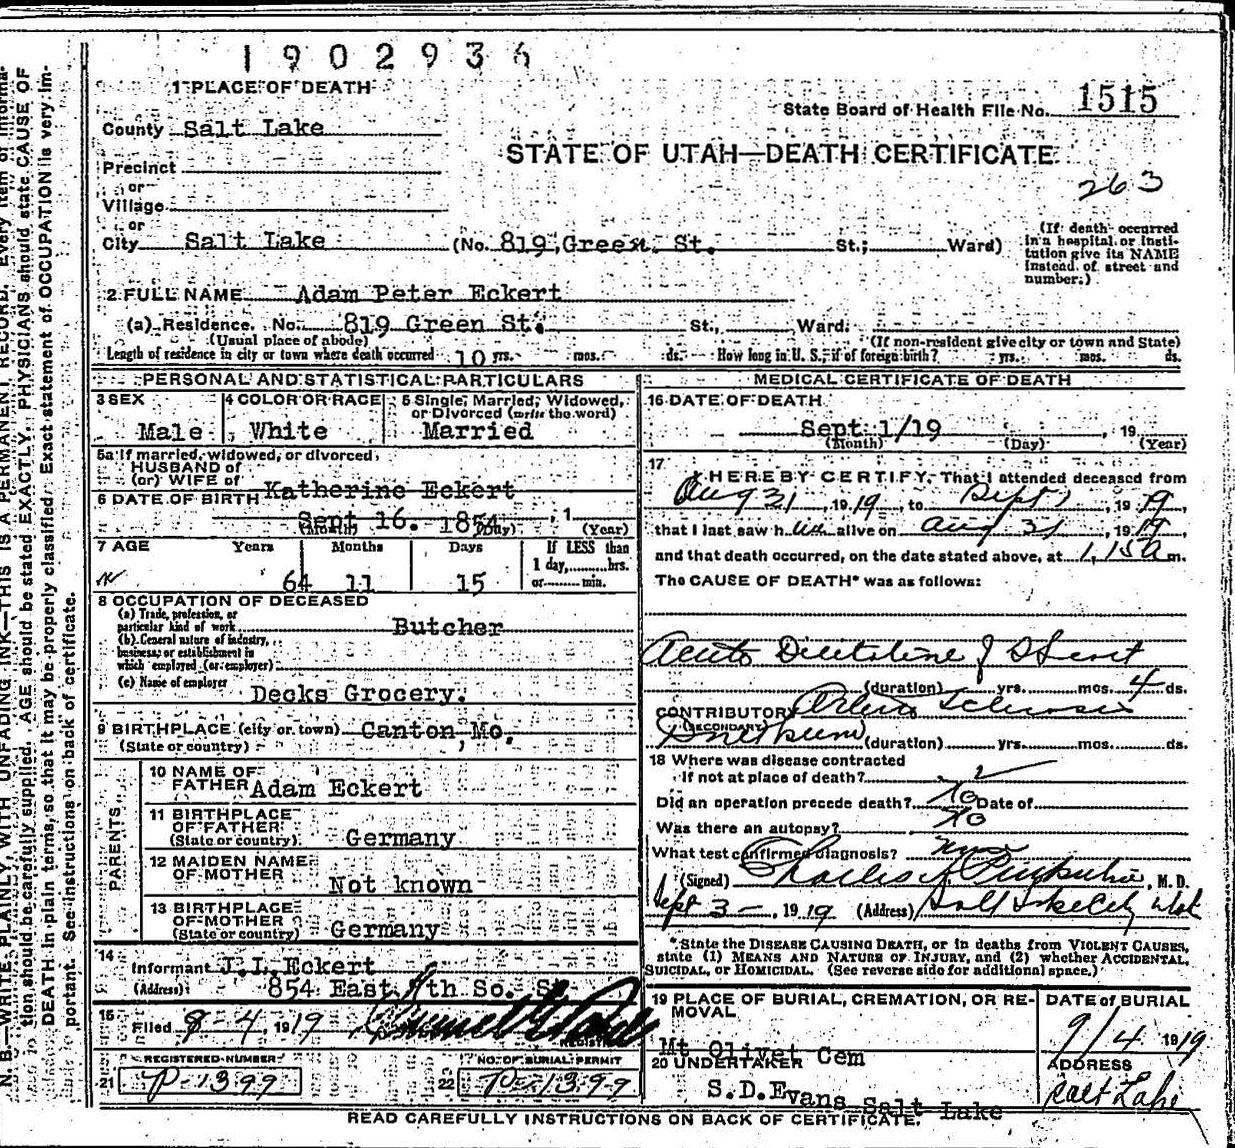 1902936
1 PLACE OF DEATH
State Board of Health File No. 1515
County Salt Lake
STATE OF UTAH—DEATH CERTIFICATE
Precinct
263
or
Village
or
City Salt Lake (No. 819 Green St. St.; Ward)
(If death occurred
in a hospital or insti-
tution give its NAME
instead of street and
number.)
2 FULL NAME Adam Peter Eckert
(a) Residence. No. 819 Green St. St., Ward.
(Usual place of abode) (If non-resident give city or town and State)
Length of residence in city or town where death occurred 10 yrs. mos. ds. How long in U. S., if of foreign birth? yrs. mos. ds.
PERSONAL AND STATISTICAL PARTICULARS
3 SEX 4 COLOR OR RACE 5 Single, Married, Widowed,
or Divorced (write the word)
Male White Married
5a If married, widowed, or divorced
HUSBAND of
(or) WIFE of Katherine Eckert
6 DATE OF BIRTH Sept 16. 1854 , 1
(Month) (Day) (Year)
7 AGE Years Months Days If LESS than
1 day, hrs.
64 11 15 or min.
8 OCCUPATION OF DECEASED
(a) Trade, profession, or
particular kind of work Butcher
(b) General nature of industry,
business, or establishment in
which employed (or employer)
(c) Name of employer Decks Grocery.
9 BIRTHPLACE (city or town) Canton, Mo.
(State or country)
PARENTS
10 NAME OF
FATHER Adam Eckert
11 BIRTHPLACE
OF FATHER
(State or country) Germany
12 MAIDEN NAME
OF MOTHER Not known
13 BIRTHPLACE
OF MOTHER
(State or country) Germany
14
Informant J.L. Eckert
(Address) 854 East 4th So. S
15
Filed 9-4, 1919
REGISTERED NUMBER NO. OF BURIAL PERMIT
21 P-1399 22 P-1399
MEDICAL CERTIFICATE OF DEATH
16 DATE OF DEATH
Sept 1/19 , 19
(Month) (Day) (Year)
17
I HEREBY CERTIFY, That I attended deceased from
Aug 31, 1919, to Sept 1, 1919,
that I last saw h alive on Aug 31, 1919,
and that death occurred, on the date stated above, at 1.15 a m.
The CAUSE OF DEATH* was as follows:
Acute of
(duration) yrs. mos. 4 ds.
CONTRIBUTORY Sclerosis
(SECONDARY)
(duration) yrs. mos. ds.
18 Where was disease contracted
if not at place of death?
Did an operation precede death? No Date of
Was there an autopsy? No
What test confirmed diagnosis?
(Signed) Charles , M. D.
Sept 3-, 1919 (Address) Salt Lake City Utah
*State the DISEASE CAUSING DEATH, or in deaths from VIOLENT CAUSES,
state (1) MEANS AND NATURE OF INJURY, and (2) whether ACCIDENTAL,
SUICIDAL, or HOMICIDAL. (See reverse side for additional space.)
19 PLACE OF BURIAL, CREMATION, OR RE-
MOVAL
Mt Olivet Cem
DATE of BURIAL
9/4 1919
20 UNDERTAKER
S.D.Evans Salt Lake
ADDRESS
Salt Lake
READ CAREFULLY INSTRUCTIONS ON BACK OF CERTIFICATE.
N. B.—WRITE PLAINLY, WITH UNFADING INK—THIS IS A PERMANENT RECORD. Every item of informa-
tion should be carefully supplied. AGE should be stated EXACTLY. PHYSICIANS should state CAUSE OF
DEATH in plain terms, so that it may be properly classified. Exact statement of OCCUPATION is very im-
portant. See instructions on back of certificate.